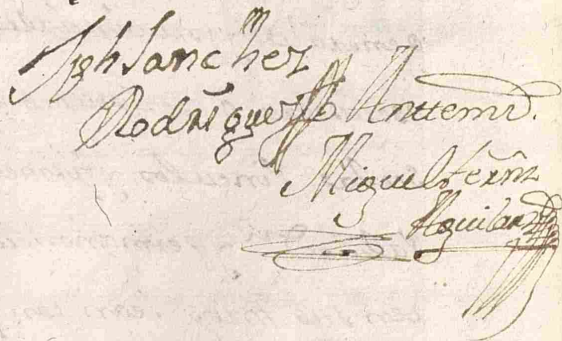 Jph Sanchez
Rodriguez Anttemi.
Miguel fernz
Aguilar